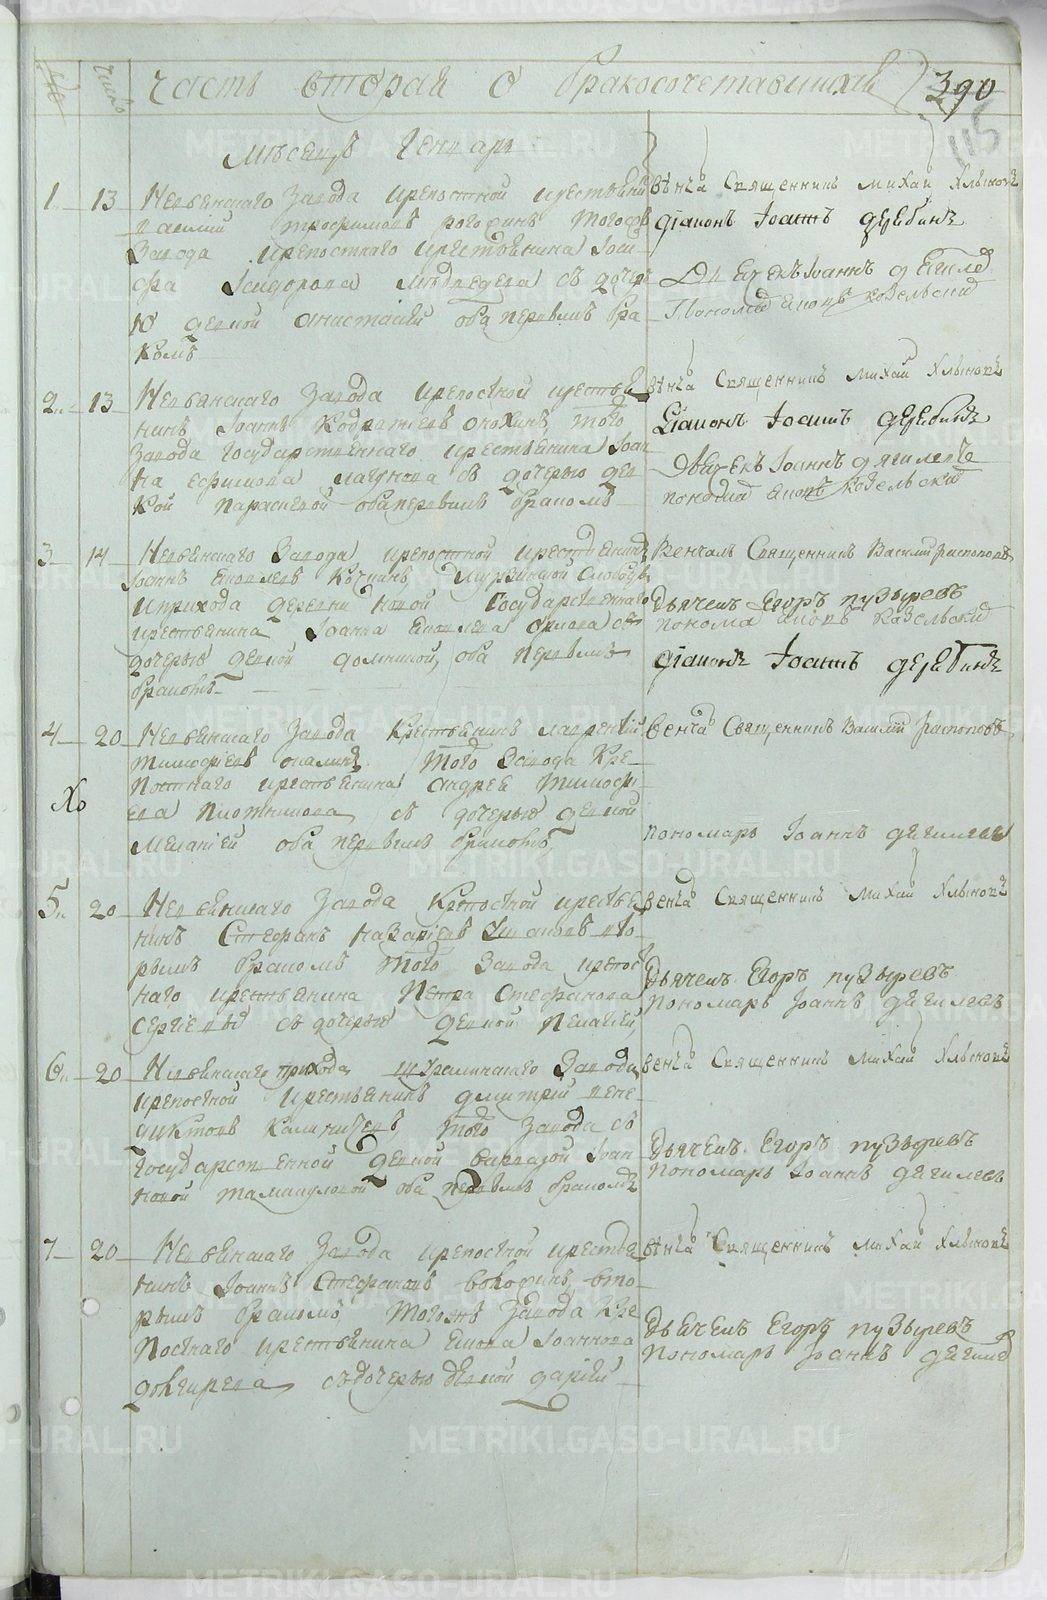 Число
часть вторая о бракосочетавшихся 390
115
Мѣсецъ Генварь
1. 13 Невьянскаго Завода крепостной крестьянинъ
трофимовъ рогозинъ тогожъ
Завода крепостнаго крестьянина Iоси-
фа Исидорова Медведева съ дочерь
ю девкой Анастасией оба первымъ бра
комъ
венча Священникъ Михаи Хлыновъ
Дiаконъ Iоаннъ Деребинъ
Iоаннъ дягиле
Пономарь Яковъ Ковельский
2. 13 Невьянскаго Завода крепостной крестья
нинъ Iоаннъ Кодратьевъ того
Завода Государственнаго крестьянина Iоан
на ефимова съ дочерью дев
кой Параскевой оба первымъ бракомъ
венча Священникъ Михаи Хлыновъ
Дiаконъ Iоаннъ Деребинъ
Дьячекъ Iоаннъ дягилевъ
пономарь Яковъ Ковельский
3 14 Невьянскаго Завода крепостной крестьянинъ
Iоаннъ Яковлевъ Мурзинской Слободы
и прихода деревни Новой Государственнаго
крестьянина Iоанна Яковлева Орлова съ
дочерью девкой домникой, оба первымъ
бракомъ
Венчалъ Священникъ Василий Распоповъ
Дьячекъ Егоръ пузыревъ
понома Яковъ Ковельский
дiаконъ Iоаннъ Деребинъ
4 20 Невьянскаго Завода Крестьянинъ лаврентий
Тимофѣевъ того Завода Кре-
постнаго крестьянина андрея тимофе
ева Плотникова съ дочерью девкой
Меланiей оба первымъ бракомъ
Хо
венча Священникъ Василий Распоповъ
пономарь Iоаннъ дягилевъ
5 20 Невьянскаго Завода Крепостной крестья
нинъ Стефанъ Назарьевъ Ушаковъ вто
рымъ бракомъ того Завода крепос
наго крестьянина Петра Стефанова
Сергеева съ дочерью девкой Пелагией
венча Священникъ Михаи Хлыновъ
Дьячекъ Егоръ пузыревъ
пономарь Iоаннъ дягилевъ
6 20 Невьянскаго прихода Шуралинскаго Завода
крепостной крестьянинъ дмитрий Вене
диктовъ того Завода съ
Государственной девкой Iоан
новой оба первымъ бракомъ
венча Священникъ Михаи Хлыновъ
Дьячекъ Егоръ пузыревъ
пономарь Iоаннъ дягилевъ
7 20 Невьянскаго Завода крепостной крестья
нинъ Iоаннъ Стефановъ вто
рымъ бракомъ тогожъ Завода Кре
постнаго крестьянина Якова Iоаннова
съ дочерью девкой дарьей
венча Священникъ Михаи Хлыновъ
Дьячекъ Егоръ пузыревъ
пономарь Iоаннъ дягиле
METRIKI.GASO-URAL.RU